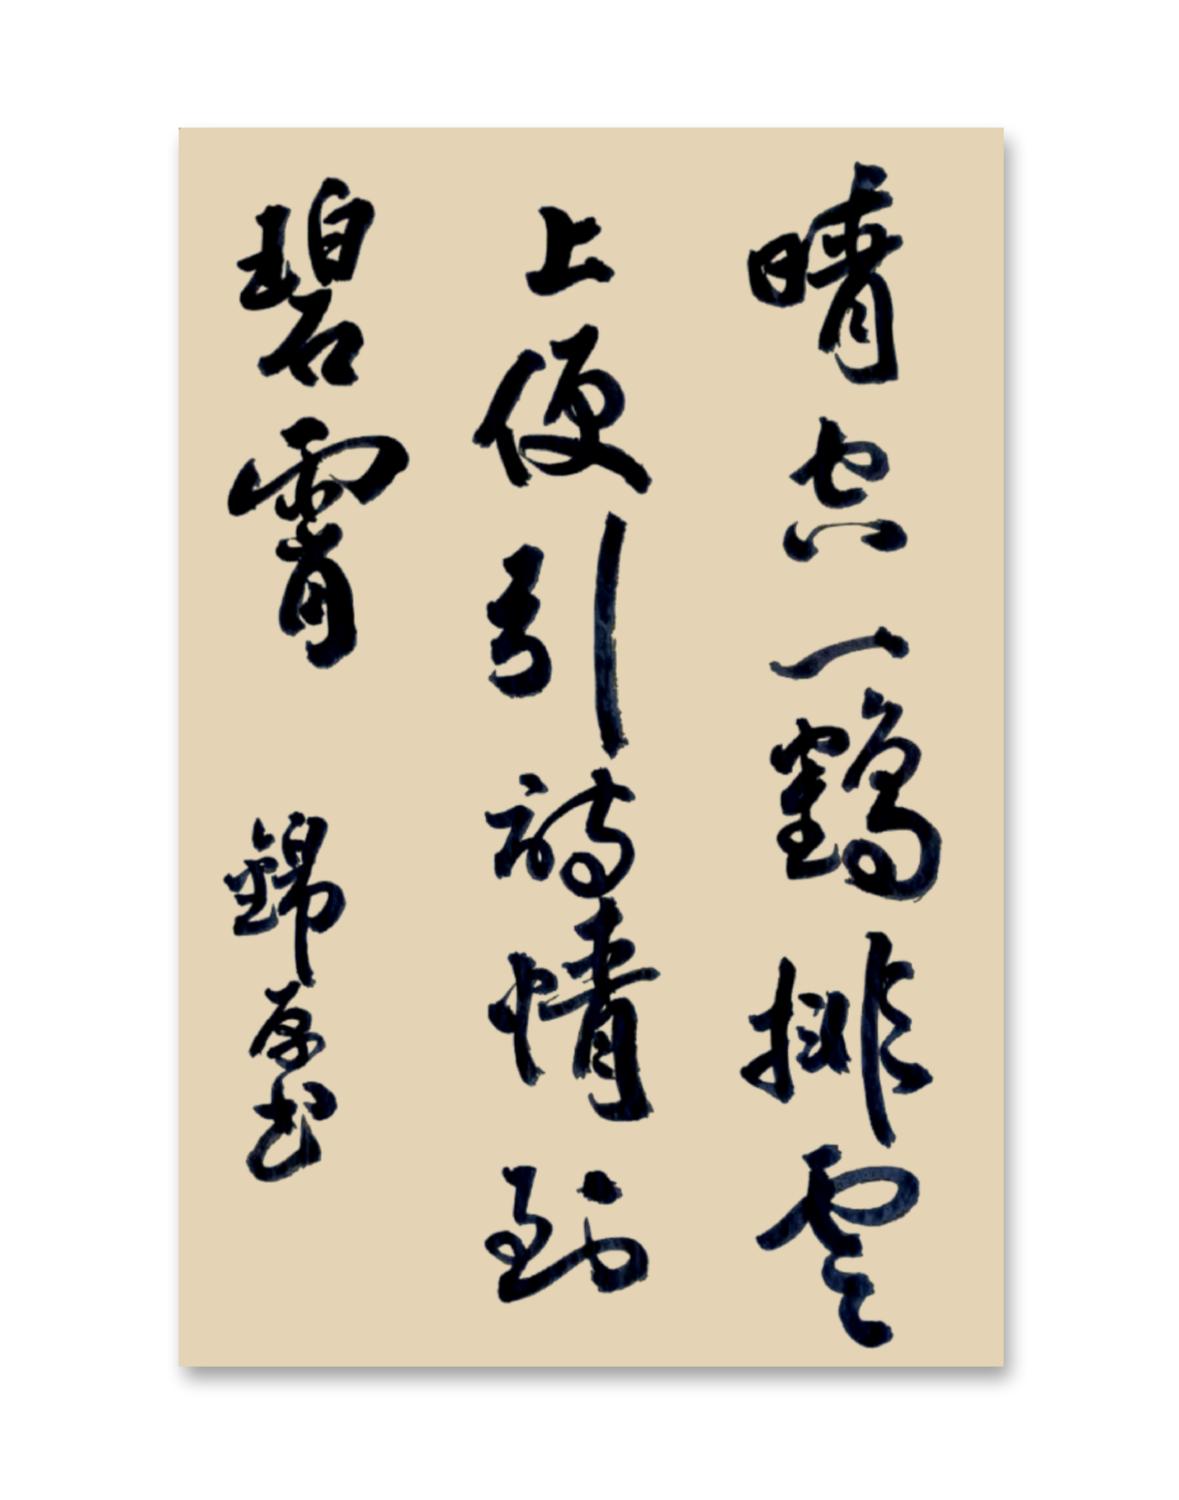 晴空一鶴排雲
上便引詩情到
碧霄
錦原书